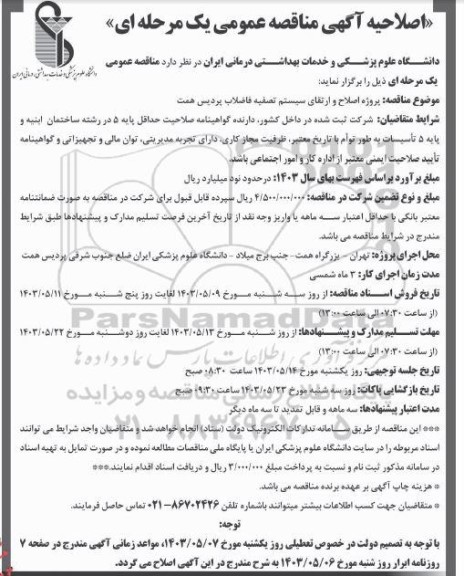 «اصلاحیه آگهی مناقصه عمومی یک مرحله ای»
دانشگاه علوم پزشکی و خدمات بهداشتی درمانی ایران
دانشگاه علوم پزشکی و خدمات بهداشتی درمانی ایران در نظر دارد مناقصه عمومی
یک مرحله ای ذیل را برگزار نماید:
موضوع مناقصه: پروژه اصلاح و ارتقای سیستم تصفیه فاضلاب پردیس همت
شرایط متقاضیان: شرکت ثبت شده در داخل کشور، دارنده گواهینامه صلاحیت حداقل پایه ۵ در رشته ساختمان ابنیه و
پایه ۵ تأسیسات به طور توأم با تاریخ معتبر، ظرفیت مجاز کاری، دارای تجربه مدیریتی، توان مالی و تجهیزاتی و گواهینامه
تأیید صلاحیت ایمنی معتبر از اداره کار و امور اجتماعی باشد.
مبلغ برآورد براساس فهرست بهای سال ۱۴۰۳: در حدود نود میلیارد ریال
مبلغ و نوع تضمین شرکت در مناقصه: ۴/۵۰۰/۰۰۰/۰۰۰ ریال سپرده قابل قبول برای شرکت در مناقصه به صورت ضمانتنامه
معتبر بانکی با حداقل اعتبار سه ماهه یا واریز وجه نقد از تاریخ آخرین فرصت تسلیم مدارک و پیشنهادها طبق شرایط
مندرج در شرایط مناقصه می باشد.
محل اجرای پروژه: تهران - بزرگراه همت - جنب برج میلاد - دانشگاه علوم پزشکی ایران ضلع جنوب شرقی پردیس همت
مدت زمان اجرای کار: ۳ ماه شمسی
تاریخ فروش اسناد مناقصه: از روز سه شنبه مورخ ۱۴۰۳/۰۵/۰۹ لغایت روز پنج شنبه مورخ ۱۴۰۳/۰۵/۱۱
(از ساعت ۰۷:۳۰ الی ساعت ۱۳:۰۰)
مهلت تسلیم مدارک و پیشنهادها: از روز شنبه مورخ ۱۴۰۳/۰۵/۱۳ لغایت روز دوشنبه مورخ ۱۴۰۳/۰۵/۲۲
(از ساعت ۰۷:۳۰ الی ساعت ۱۳:۰۰)
تاریخ جلسه توجیهی: روز یکشنبه مورخ ۱۴۰۳/۰۵/۱۴ ساعت ۰۸:۳۰ صبح
تاریخ بازگشایی پاکات: روز سه شنبه مورخ ۱۴۰۳/۰۵/۲۳ ساعت ۰۹:۳۰ صبح
مدت اعتبار پیشنهادها: سه ماهه و قابل تمدید تا سه ماه دیگر
*** این مناقصه از طریق سامانه تدارکات الکترونیک دولت (ستاد) انجام خواهد شد و متقاضیان واجد شرایط می توانند
اسناد مربوطه را در سایت دانشگاه علوم پزشکی ایران یا پایگاه ملی مناقصات مطالعه نموده و در صورت تمایل به تهیه اسناد
در سامانه مذکور ثبت نام و نسبت به پرداخت مبلغ ۳/۰۰۰/۰۰۰ ریال و دریافت اسناد اقدام نمایند.***
* هزینه چاپ آگهی بر عهده برنده مناقصه می باشد.
* متقاضیان جهت کسب اطلاعات بیشتر میتوانند با شماره تلفن ۸۶۷۰۲۴۲۶-۰۲۱ تماس حاصل فرمایند.
توجه:
با توجه به تصمیم دولت در خصوص تعطیلی روز یکشنبه مورخ ۱۴۰۳/۰۵/۰۷، مواعد زمانی آگهی مندرج در صفحه ۷
روزنامه ابرار روز شنبه مورخ ۱۴۰۳/۰۵/۰۶ به شرح مندرج در این آگهی اصلاح می گردد.
ParsNamadData